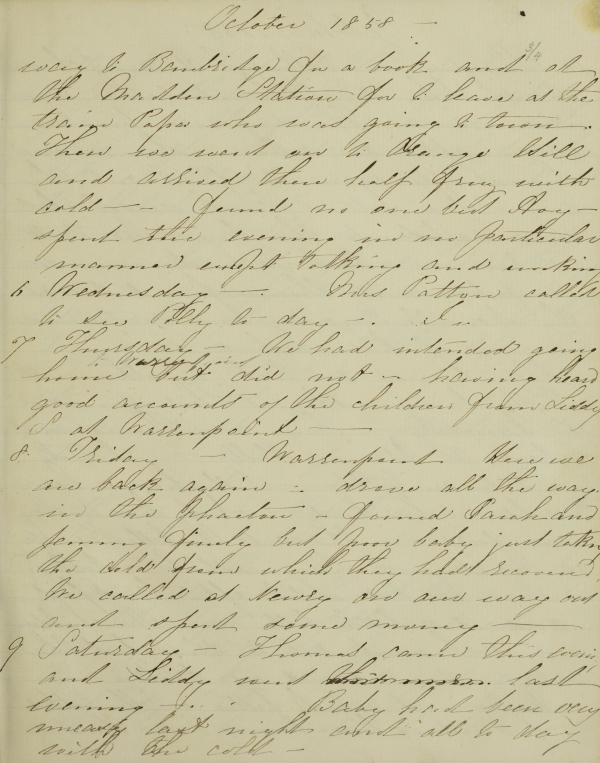 October 1858 —
way to Banbridge for a book and at
the Madden Station for to leave at the
train Papa who was going to town.
Then we went on to Orange Hill
and arrived there half froze with
cold — — found no one but Hoy —
spent the evening in no particular
manner except talking and working
6 Wednesday — . Mrs Patton called
to see Polly to day — .
7 Thursday — We had intended going
to Warrenpoint
home but did not — having heard
good accounts of the children from Liddy
S at Warrenpoint —
8 Friday — Warrenpoint Here we
are back again — drove all the way
in the phaeton — found and
finely but poor baby just taking
the cold from which they had recovered
We called at Newry on our way out
and spent some money —
9 Saturday — Thomas came this evening
and Liddy went last
evening — . . Baby had been very
uneasy last night and all to day
with the cold —